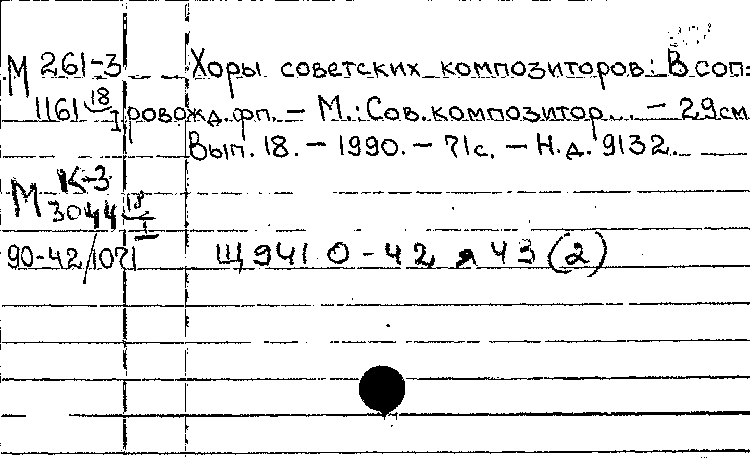 М 261-3 Хоры советских композиторов: В соп:
1161 18 ровожд. фп. – М.: Сов. композитор... – 29 см
I Вып. 18. – 1990. – 71 с. – Н. д. 9132.
М К-3
3044 18
I
90-42/1071 Щ 9410-42 я 43 (2)